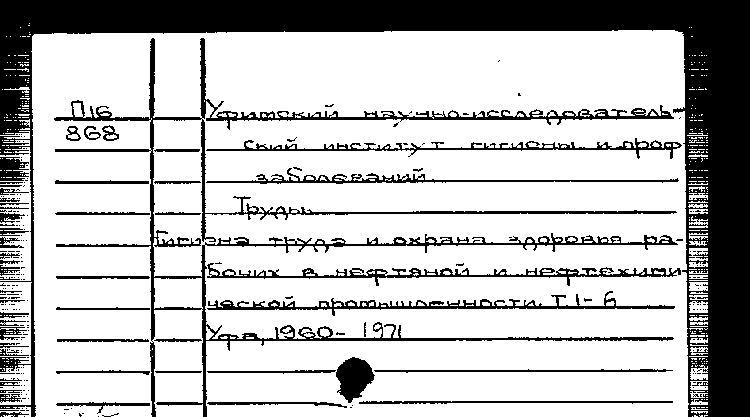 П16
868
Уфимский научно-исследователь-
ский институт гигиены и проф
заболеваний.
Труды.
Гигиена труда и охрана здоровья ра-
бочих в нефтяной и нефтехими-
ческой промышленности. Т. 1-6
Уфа, 1960- 1971